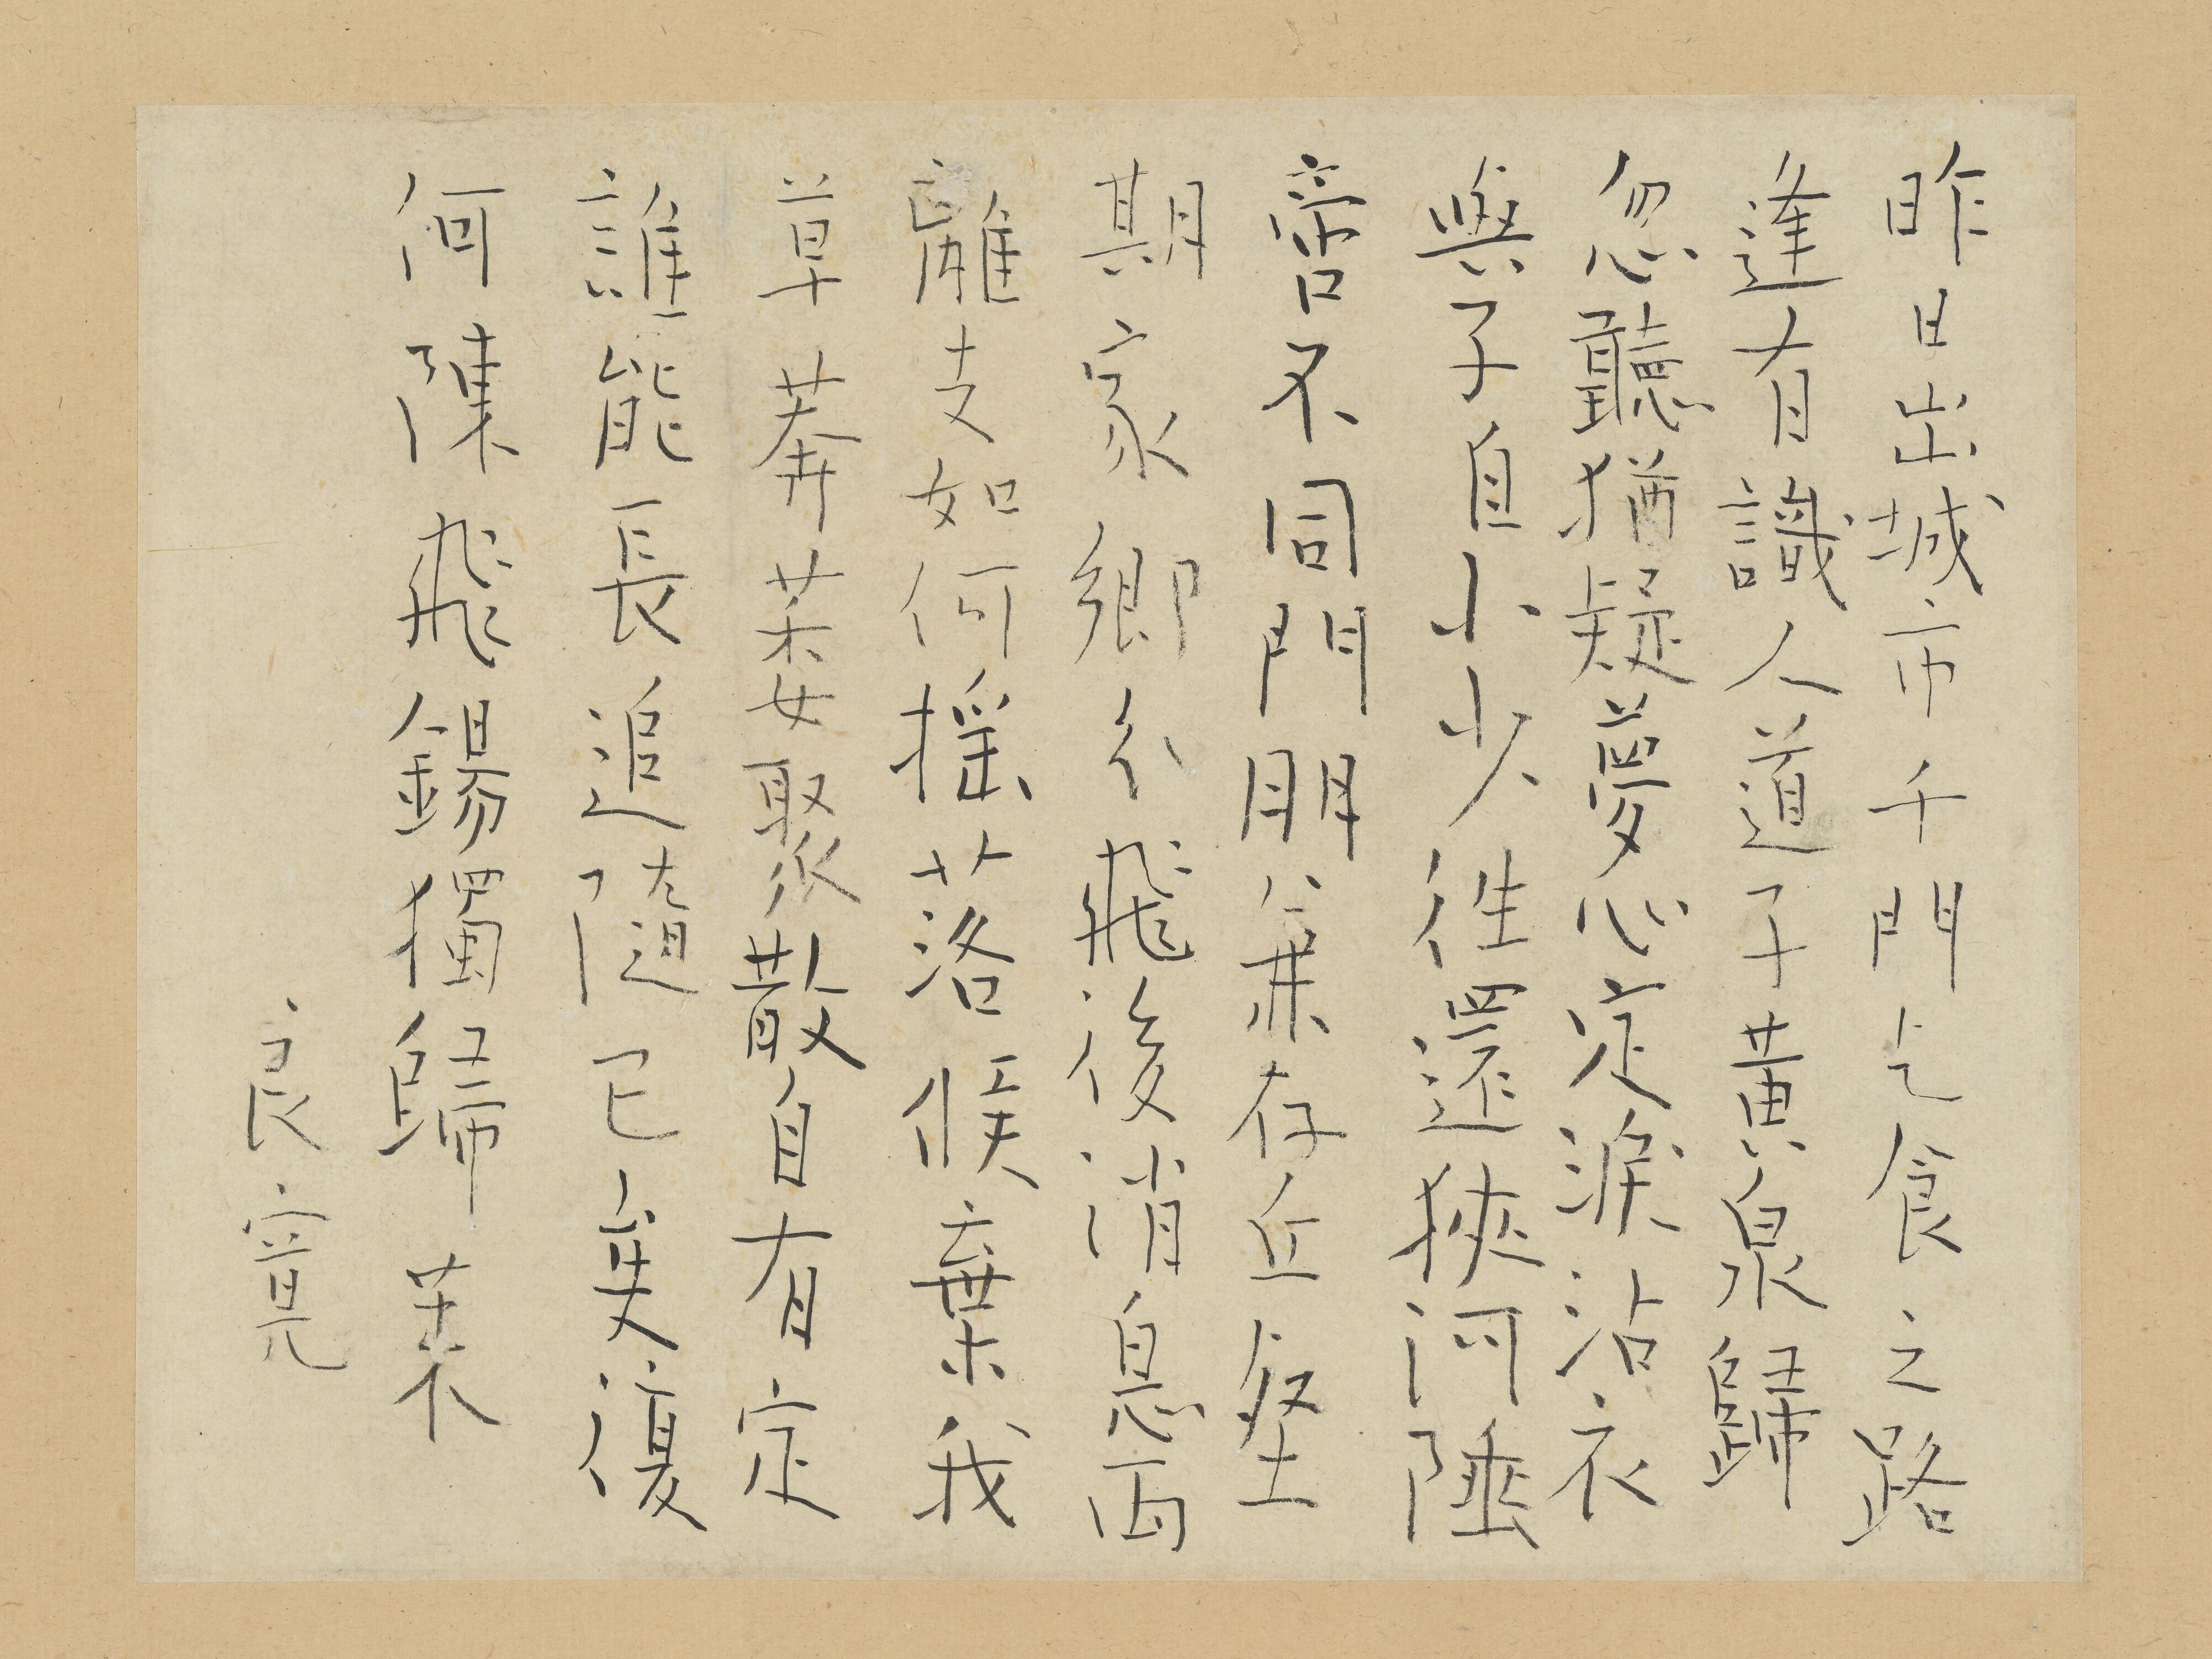 昨日出城市千門乞食之路
逢有識人道子黄泉歸
忽聽猶疑夢心定淚沾衣
與子自小少往還狹河陲
啻不同門朋兼存丘壑
期家鄉分飛後消息両
離支如何揺落候棄我
草莽聚散自有定
誰能長追隨已矣復
何陳飛錫獨歸莱
良寛